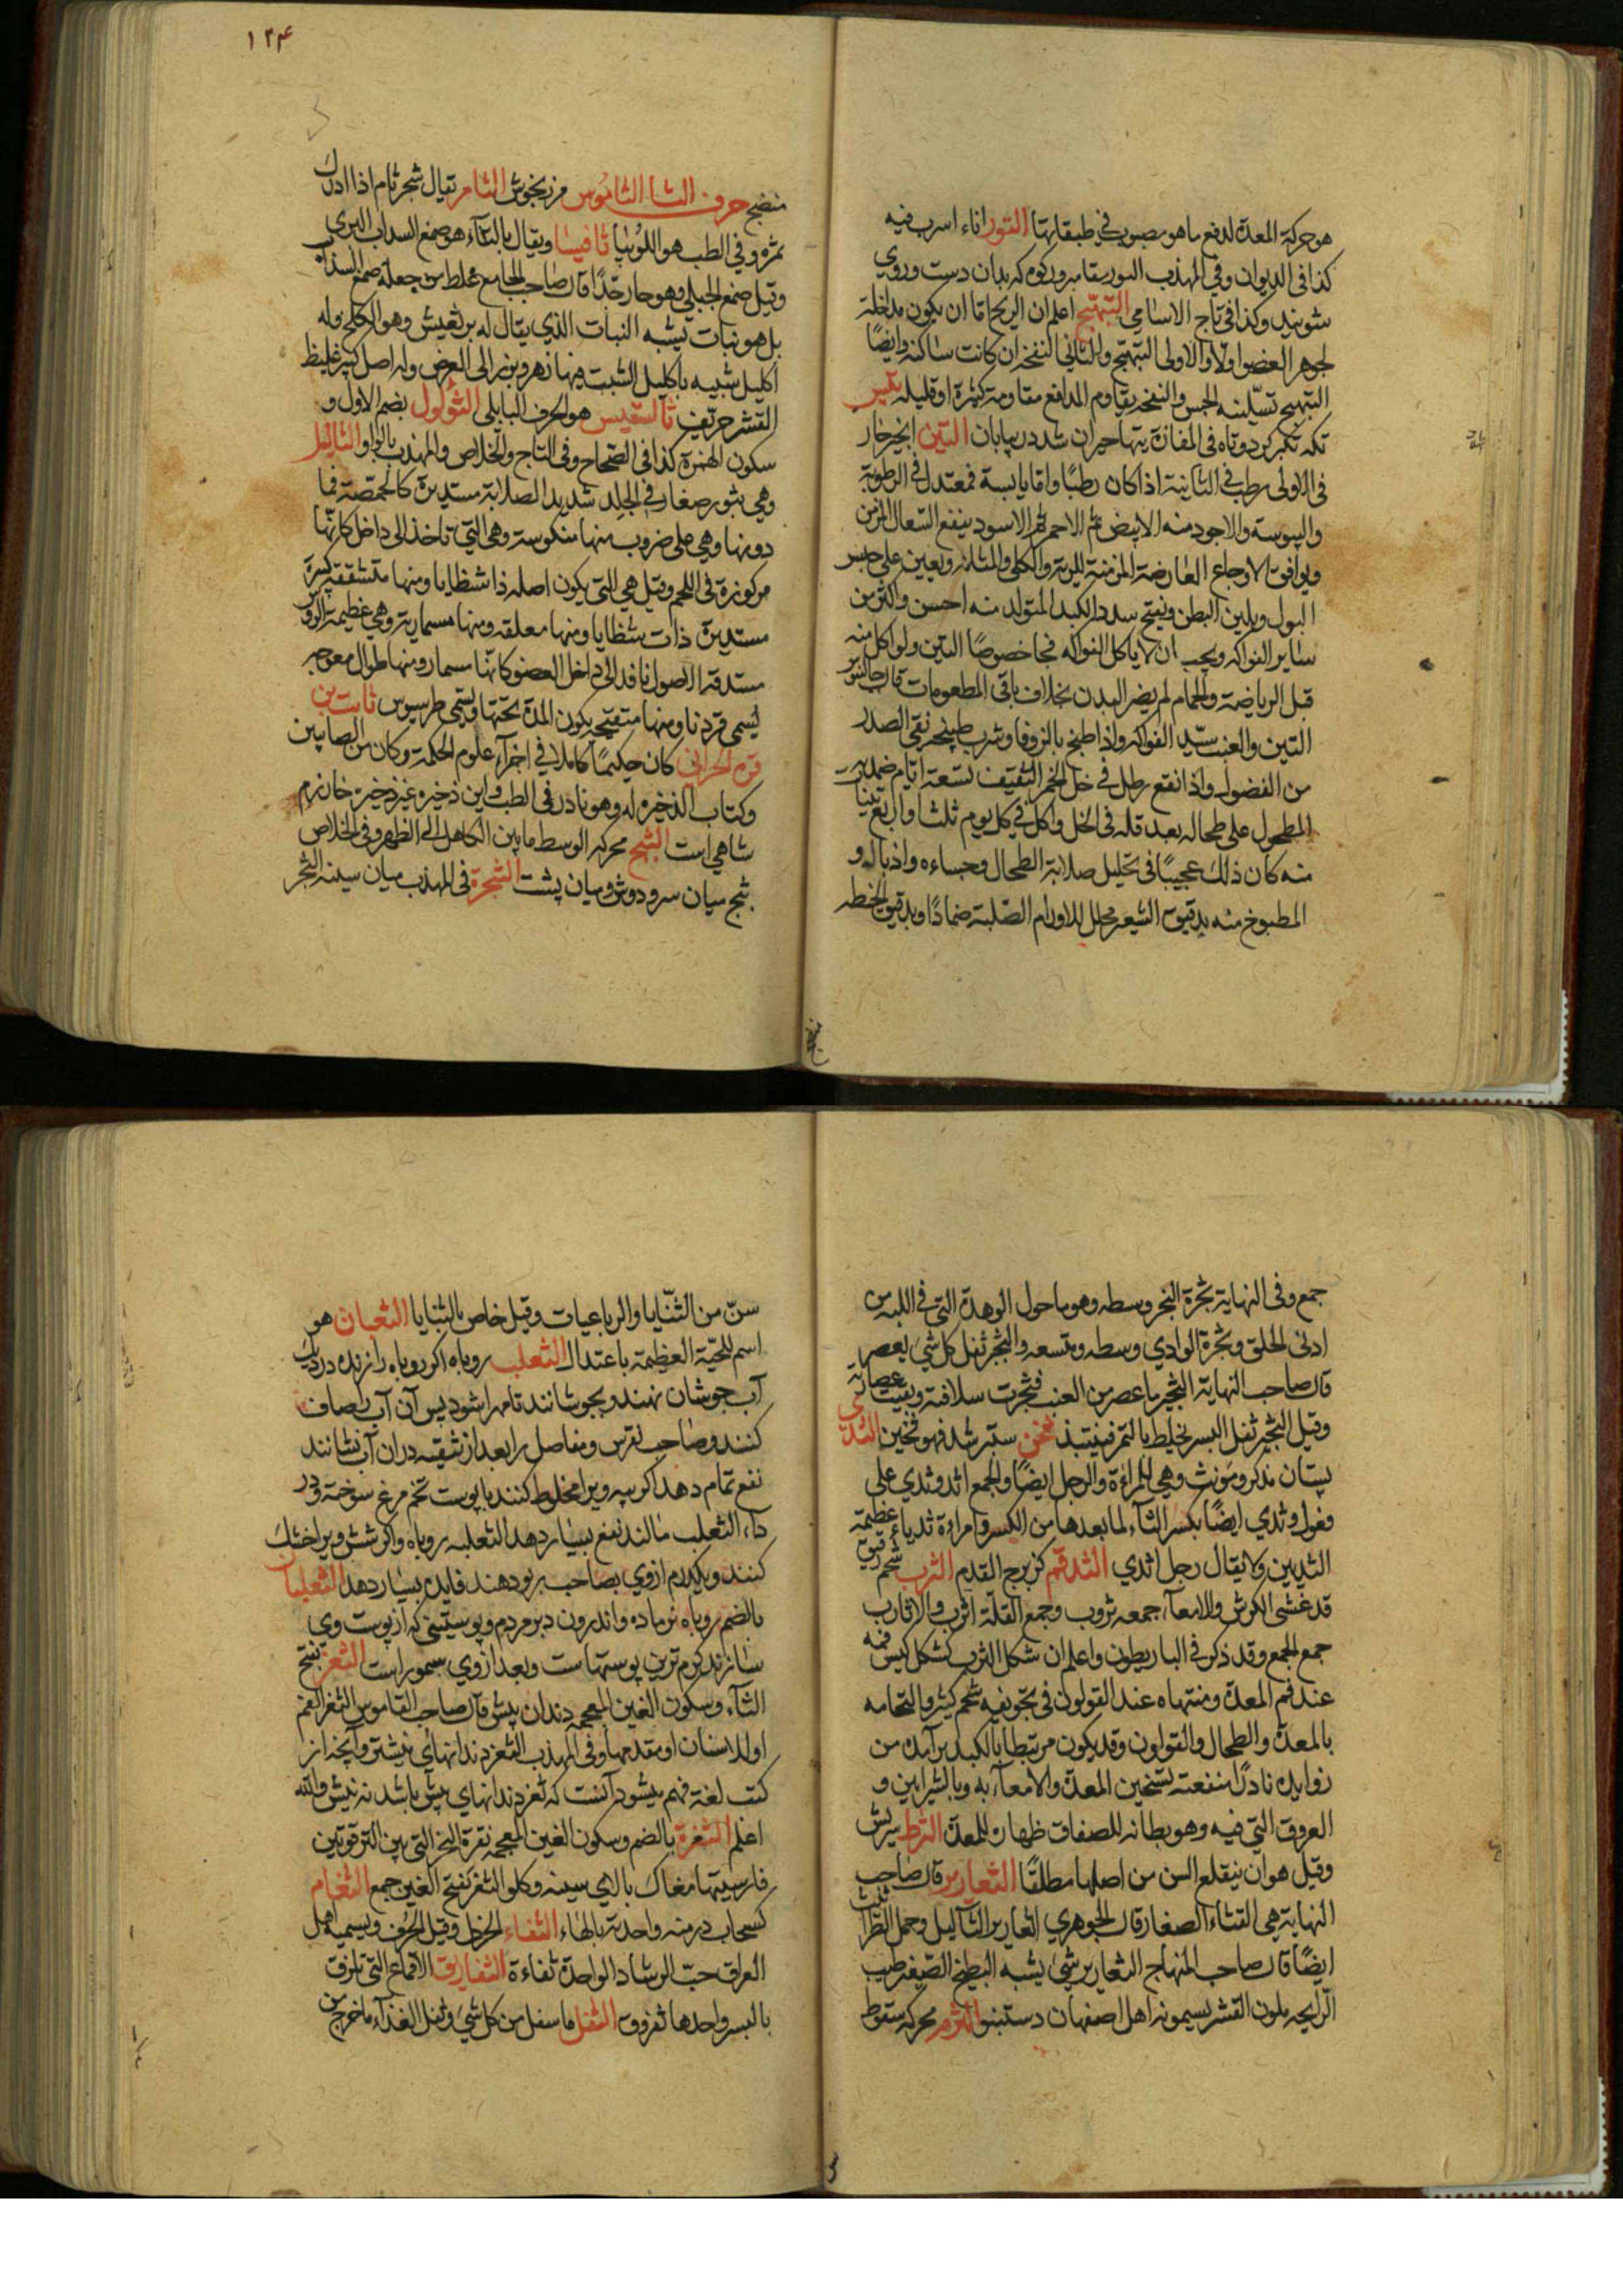 هو حركة المعدة لدفع ما هو مصبوب في طبقاتها التور اناء اسرب فيه
كذا فى الديوان وفي المهذب التور بتاميروركوه كه بدان دست وروي
شويند وكذا في تاج الاسامي التهبج اعلم ان الريح اما ان يكون مداخلة
لجوهر العضو اولا والاولى التهبج والثاني النفخة ان كانت ساكنة وايضًا
التهبج تسلينه الجس والنفخة يقاوم المدافع مقاومة كثيرة او قليلة
دوتاه فى المفازة يتها حيران شد در بيابان التين انجير حار
فى الاولى رطب في الثانية اذا كان رطبًا واما يابسة فمعتدل في الرطوبة
واليبوسة والاجود منه الابيض ثم الاحمر ثم الاسود ينفع السعال المزمن
ويوافق الاوجاع العارضة المزمنة للرية والكلى والمثانة ويعين على حبس
البول ويلين البطن ويفتح سدد الكبد المتولد منه احسن واكثر من
ساير الفواكه ويجب ان لا ياكل الفواكه فجا خصوصًا التين ولو اكل منه
قبل الرياضة والحمام لم يضر البدن بخلاف باقى المطعومات قال جالينوس
التين والعنب سيد الفواكه واذا طبخ بالزوفا وشرب طبيخه نقى الصدر
من الفضول واذا نقع رطل في خل الخمر الثقيف تسعة ايام ضمد به
المطحول على طحاله بعد قله فى الخل واكل في كل يوم ثلثا واربع تينات
منه كان ذلك عجيبًا في تحليل صلابة الطحال وجساءه واذباله و
المطبوخ منه بدقيق الشعير محلل للاورام الصلبة ضمادًا وبدقيق الحنطه
١٢٤
منضج حرف الثا الثاموس مرزنجوش الثامر يقال شجر ثامر اذا ادرك
ثمره وفي الطب هو اللوبيا ثافيسا ويقال بالتاء هو صمغ السداب البري
وقيل صمغ الجبلي وهو حار جدًا قال صاحب الجامع غلط من جعله صمغ السذاب
بل هو نبات يشبه النبات الذي يقال له برنعيش وهو الكلخ وله
اكليل شبيه باكليل الشبت فيها زهر وبزر الى العرض وله اصل كبير غليظ
القشر حريف ثالسقيس هو الحرف البابلي الثؤلول بضم الاول و
سكون الهمزة كذا فى الصحاح وفى التاج والخلاص والمهذب بالواو الثاليل
وهي بثور صغار في الجلد شديد الصلابة مستديرة كالحمصة فما
دونها وهي على ضروب منها منكوسة وهى التي تاخذ الى داخل كانها
مركوزة فى اللحم وقيل هي التى يكون اصله ذا شظايا ومنها متشققة كبيرة
مستديرة ذات شظايا ومنها معلقة ومنها مسمارية وهي عظيمة الروس
مستدقة الاصول نافذ الى داخل العضو كانها مسمار ومنها طوال معوجة
يسمى قردنا ومنها متقيحة يكون المدة تحتها ويسمى طرسيوس ثابت بن
قره الحراني كان حكيمًا كاملا في اجزآء علوم الحكمة وكان من الصابيين
وكتاب الذخيره له وهو نادر فى الطب واين ذخيره غير ذخيرة خوارزم
شاهي است الثبج محركه الوسط ما بين الكاهل الى الظهر وفى الخلاص
ثبج ميان سر ودوش وميان پشت الثجرة فى المهذب ميان سينه الثجر
جمع وفى النهاية ثجرة النحر وسطه وهو ما حول الوهدة التى في اللبه من
ادنى الحلق وثجرة الوادي وسطه ومتسعه والثجر ثفل كل شئ يعصر
قال صاحب النهاية الثجير ما عصر من العنب فجرت سلافته وبقيت عصارته
وقيل الثجير ثفل البسر يخلط بالتمر فينتبذ ثخن ستبر شد فهو ثخين الثدي
پستان مذكر ومونث وهي للمرأة والرجل ايضًا والجمع اثد وثدي على
فعول وثدي ايضًا بكسر الثآء لما بعدها من الكسر وامراءة ثدياء عظيمة
الثديين ولا يقال رجل اثدي الثدقم كزبرج القدم الثرب شحم رقيق
قد غشى الكرش والامعآء جمعه ثروب وجمع القلة اثرب والاثارب
جمع الجمع وقد ذكر في الباريطون واعلم ان شكل الثرب كشكل كيس فمه
عند فم المعدة ومنتهاه عند القولون فى تجويفه شحم كثير والتحامه
بالمعدة والطحال والقولون وقد يكون مرتبطا بالكبد برآمده من
زوايده نادرًا منفعته تسخين المعدة والامعآء به وبالشرايين و
العروق التي فيه وهو بطانه للصفاق ظهارة للمعدة الثرط سريش
وقيل هو ان ينقلع السن من اصلها مطلقًا الثعارير قال صاحب
النهاية هي القثاء الصغار قال الجوهري الثعارير الثآليل وحمل الطراثيث
ايضًا قال صاحب المنهاج الثعارير شئ يشبه البطيخ الصغير طيب
الرايحه ملون القشر يسمونه اهل اصفهان دستنبو الثرم محركه سقوط
سن من الثنايا والرباعيات وقيل خاص بالثنايا الثعبان هو
اسم للحية العظيمة باعتدال الثعلب روباه اكر روباه را زنده در ديك
آب جوشان نهند وبجوشانند تا مهرا شود پس آن آب را صاف
كنند وصاحب نقرس ومفاصل را بعد از تنقيه در ان آب نشانند
نفع تمام دهد اكر پيه ويرا مخلوط كنند با پوست تخم مرغ سوخته ودر
دآء الثعلب مالند نفع بسيار دهد الثعلبه روباه واكر شش ويرا خشك
كنند ويكدرم ازوي بصاحب ربو دهند فايده بسيار دهد الثعلبان
بالضم روباه نر ماده واندرون دبر مردم وپوستينى كه از پوست وي
سازند كرم ترين پوستهاست وبعد ازوي سمور است الثغر بفتح
الثآء وسكون الغين المعجمه دندان پيش قال صاحب القاموس الثغر الفم
او الاسنان او مقدمها وفى المهذب الثغر دندانهاى پيشتر وآنچه از
كتب لغة فهم ميشود آنست كه ثغر دندانهاى پيش باشد نه نيش والله
اعلم الثغرة بالضم وسكون الغين المعجمه نقرة النحر التى بين الترقوتين
فارسيتها مغاك بالاي سينه وكلو الثغر بفتح الغين جمع الثغام
كسحاب درمنه واحدته بالهاء الثفاء الخردل وقيل الحرف ويسميه اهل
العراق حب الرشاد الواحدة ثفاءة الثفاريق الاقماع التى تلزق
بالبسر واحدها ثفروق الثفل ما سفل من كل شئ وثفل الغذآء ما خرج من